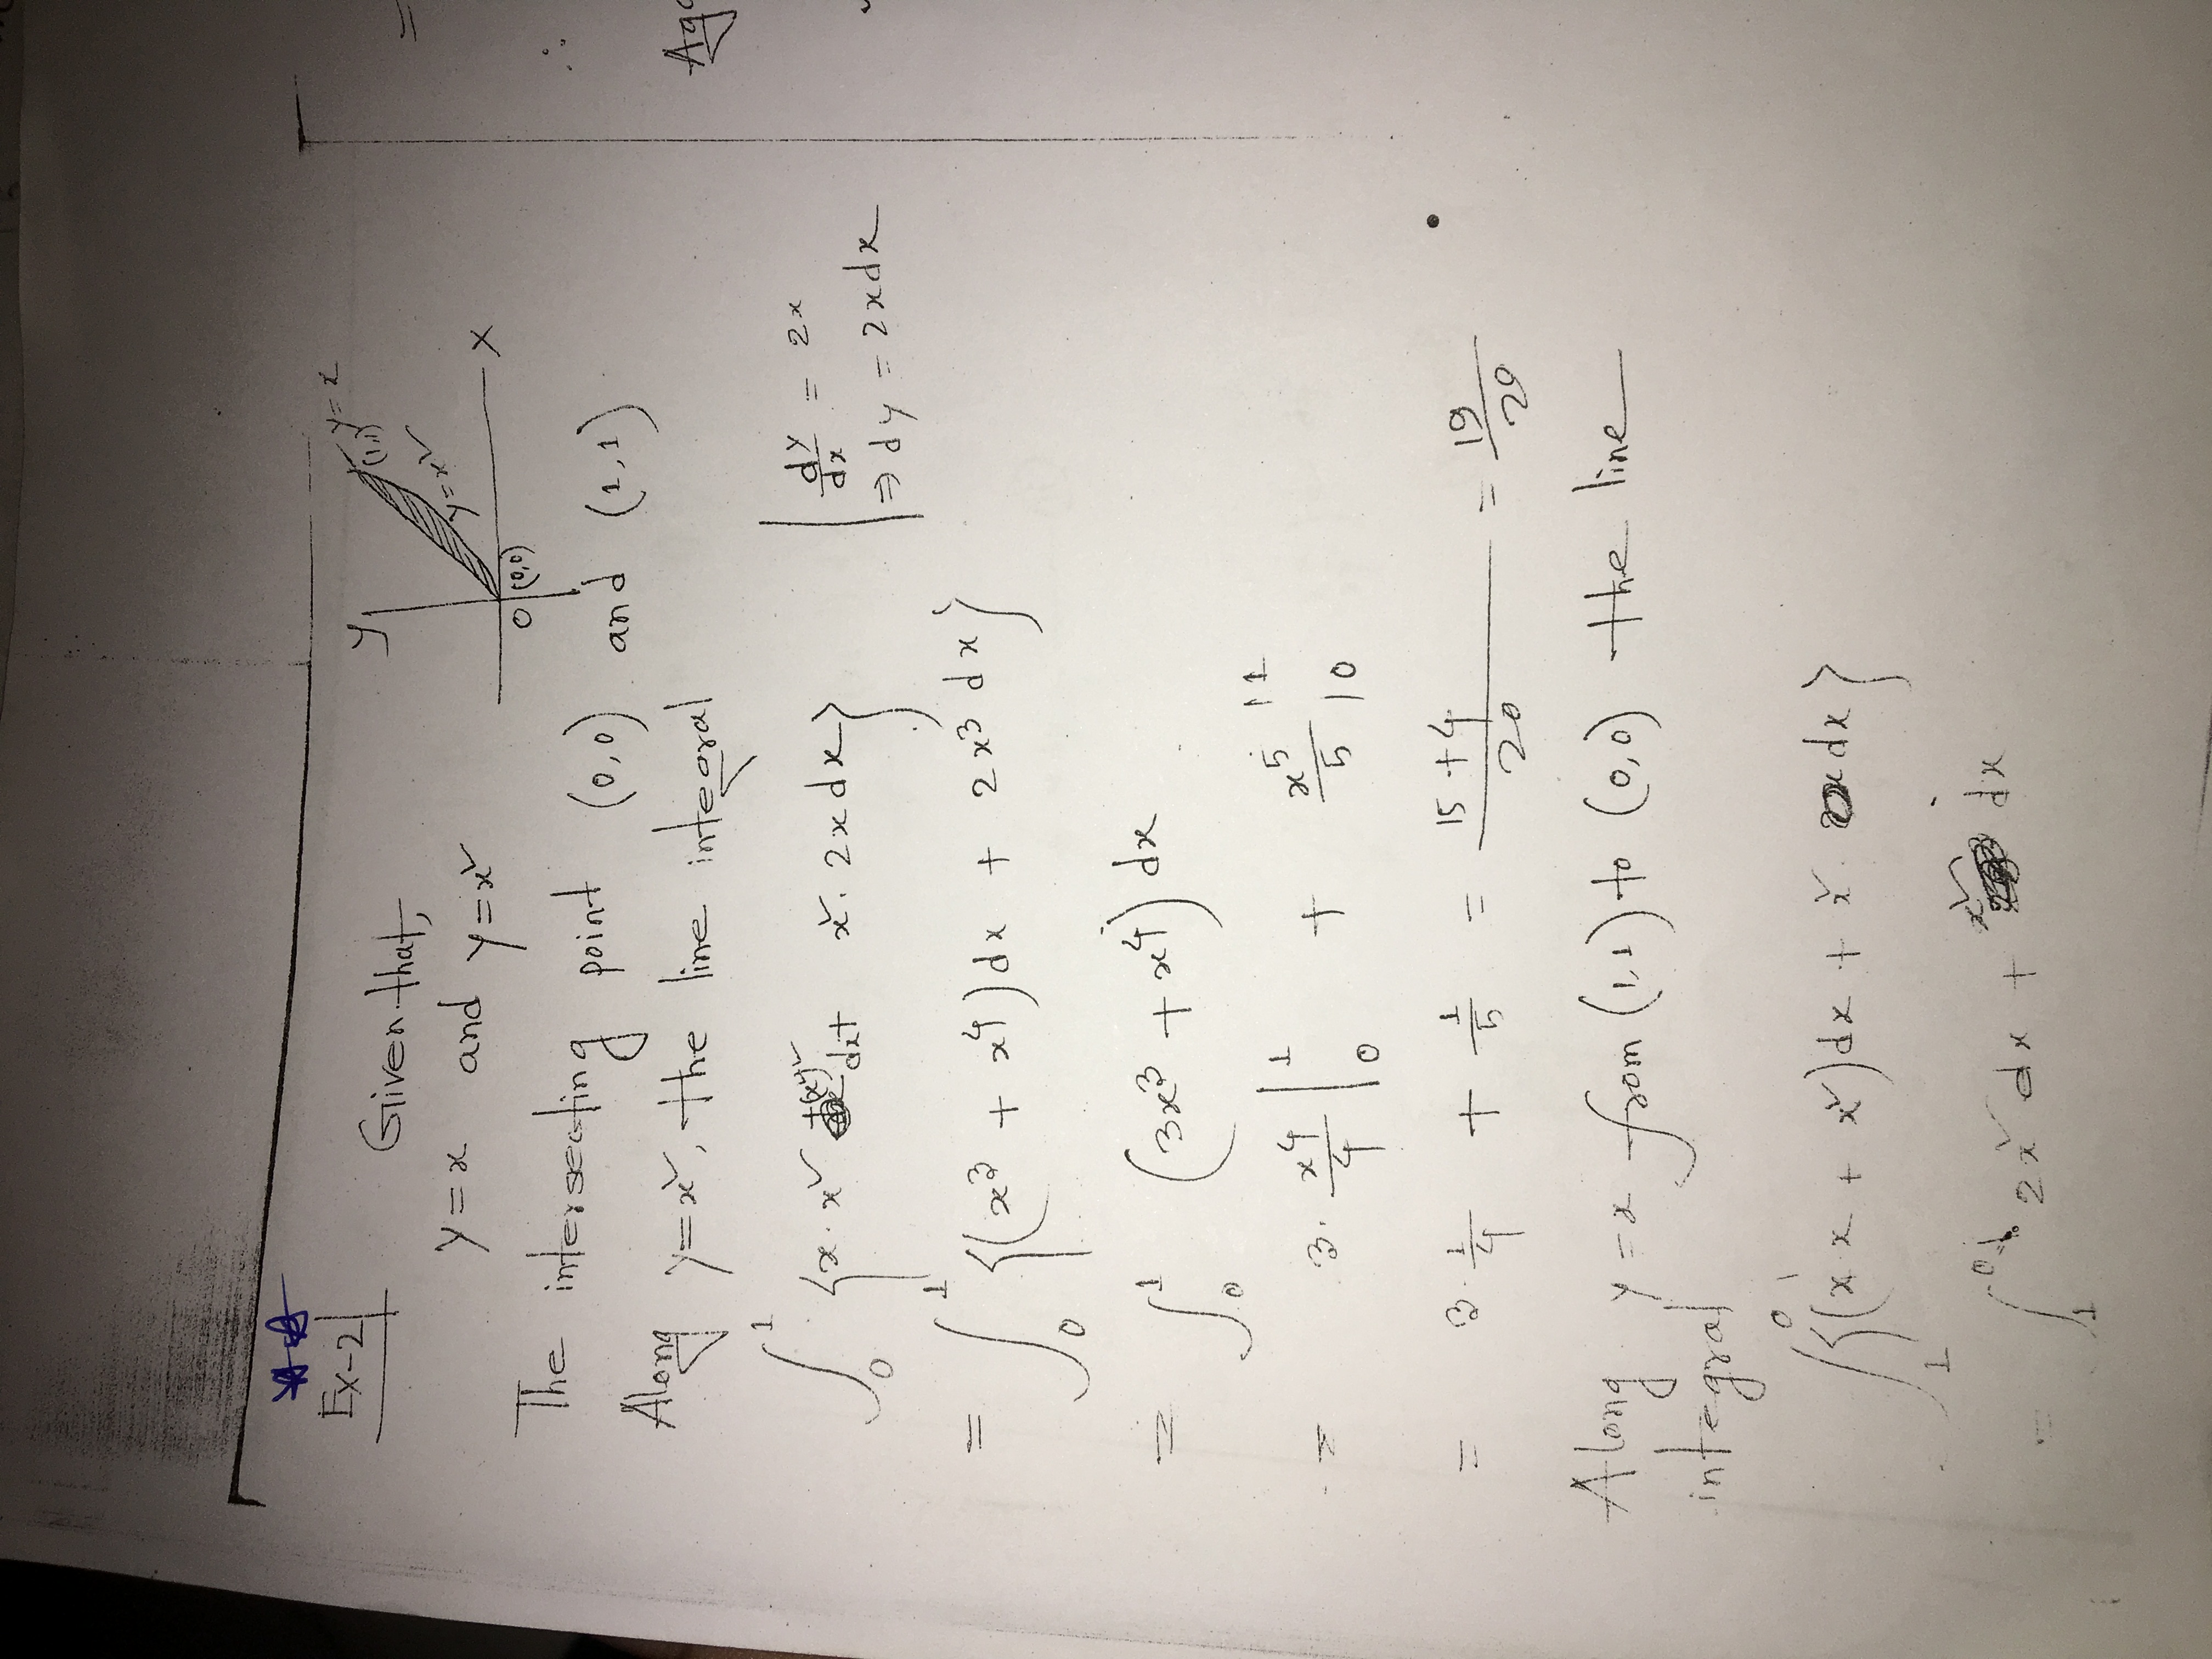 Ex-2
Given that,
y = x and y = x²
y
y = x
(1,1)
y = x²
X
O (0,0)
The intersecting point (0,0) and (1,1)
Along y = x², the line integral
∫₀¹ {x · x² +(x²)² dx + x² · 2x dx}
dy/dx = 2x
⇒ dy = 2x dx
= ∫₀¹ {(x³ + x⁴) dx + 2x³ dx}
= ∫₀¹ (3x³ + x⁴) dx
= 3 · x⁴/4 |₀¹ + x⁵/5 |₀¹
= 3 · 1/4 + 1/5 = 15 + 4/20 = 19/20
Along y = x from (1,1) to (0,0) the line
integral
∫₁⁰ {(x · x + x²) dx + x² dx}
= ∫₁⁰ 2x² dx + x² dx
=
∴